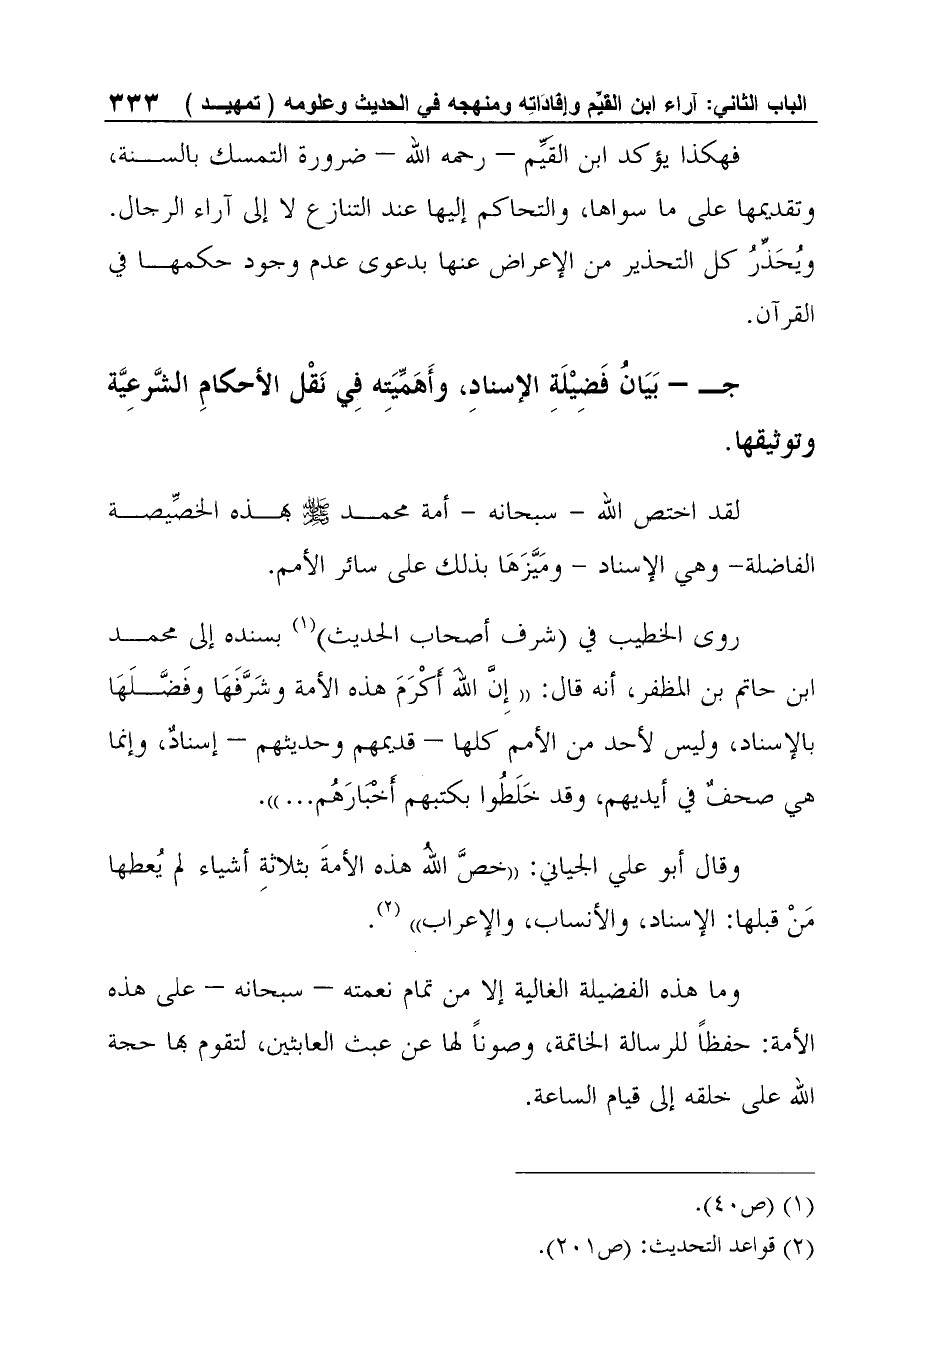 الباب الثاني: آراء ابن القيِّم وإفادَاتِه ومنهجه في الحديث وعلومه ( تمهيـد ) ٣٣٣
فهكذا يؤكد ابن القيِّم – رحمه الله – ضرورة التمسك بالسـنة،
وتقديمها على ما سواها، والتحاكم إليها عند التنازع لا إلى آراء الرجال.
ويُحَذِّرُ كل التحذير من الإعراض عنها بدعوى عدم وجود حكمهـا في
القرآن.
جـ – بَيَانُ فَضِيْلَةِ الإسنادِ، وأَهَمِّيَتِه فِي نَقْلِ الأحكامِ الشَّرعِيَّة
وتوثيقها.
لقد اختص الله – سبحانه – أمة محمـد ﷺ بهـذه الخصِّيصـة
الفاضلة– وهي الإسناد – ومَيَّزَهَا بذلك على سائر الأمم.
روى الخطيب في (شرف أصحاب الحديث)(١) بسنده إلى محمـد
ابن حاتم بن المظفر، أنه قال: «إِنَّ اللهَ أَكْرَمَ هذه الأمة وشَرَّفَهَا وفَضَّـلَهَا
بالإسناد، وليس لأحد من الأمم كلها – قديمهم وحديثهم – إسنادٌ، وإنما
هي صحفٌ في أيديهم، وقد خَلَطُوا بكتبهم أَخْبَارَهُم...».
وقال أبو علي الجياني: «خصَّ اللهُ هذه الأمةَ بثلاثةِ أشياء لم يُعطها
مَنْ قبلها: الإسناد، والأنساب، والإعراب» (٢).
وما هذه الفضيلة الغالية إلا من تمام نعمته – سبحانه – على هذه
الأمة: حفظاً للرسالة الخاتمة، وصوناً لها عن عبث العابثين، لتقوم بها حجة
الله على خلقه إلى قيام الساعة.
(١) (ص٤٠).
(٢) قواعد التحديث: (ص٢٠١).